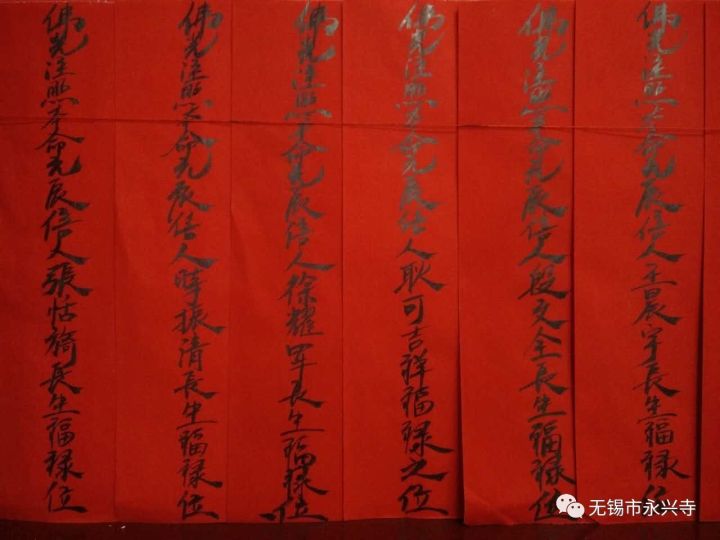 佛光注照本命元辰信人王晨宇長生福禄位
佛光注照本命元辰信人段文全長生福禄位
佛光注照本命元辰信人耿可吉祥福禄之位
佛光注照本命元辰信人徐耀军長生福禄位
佛光注照本命元辰信人時振清長生福禄位
佛光注照本命元辰信人張恬旖長生福禄位
无锡市永兴寺